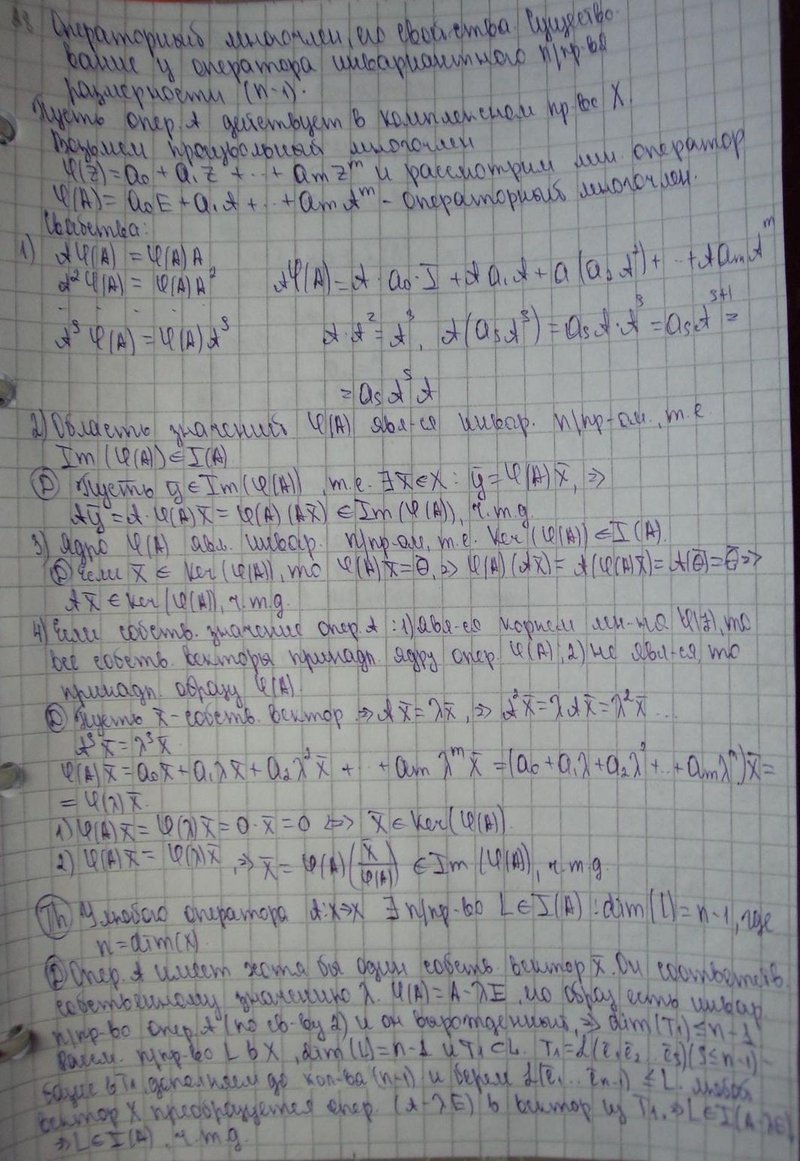 Операторный многочлен, его свойства. Существо-
вание у оператора инвариантного п/пр-ва
размерности (n-1).
Пусть опер. A действует в комплексном пр-ве X.
Возьмем произвольный многочлен
φ(z)=a₀+a₁z+...+aₘzᵐ и рассмотрим лин оператор
φ(A)=a₀E+a₁A+...+aₘAᵐ - операторный многочлен.
Свойства:
1) Aφ(A)=φ(A)A
A²φ(A)=φ(A)A² Aφ(A)=A·a₀·I+Aa₁A+a(a₂A²)+...+AaₘAᵐ
Aˢφ(A)=φ(A)Aˢ A·A²=A³, A(aₛAˢ)=aₛA·Aˢ=aₛAˢ⁺¹=
=aₛAˢA
2) Область значений φ(A) явл-ся инвар. п/пр-ом, т.е.
Im(φ(A))∈I(A)
Пусть y̅∈Im(φ(A)), т.е. ∃x̅∈X: y̅=φ(A)x̅, ⇒
Ay̅=A·φ(A)x̅=φ(A)(Ax̅)∈Im(φ(A)), ч.т.д.
3) Ядро φ(A) явл. инвар. п/пр-ом, т.е. Ker(φ(A))∈I(A).
Если x̅∈Ker(φ(A)), то φ(A)x̅=θ̅, ⇒ φ(A)(Ax̅)=A(φ(A)x̅)=A(θ̅)=θ̅⇒
Ax̅∈Ker(φ(A)), ч.т.д.
4) Если собств. значение опер. A: 1) явл-ся корнем мн-на φ(z), то
все собств. векторы принадл. ядру опер. φ(A), 2) не явл-ся, то
принадл. образу φ(A).
Пусть x̅ - собств. вектор ⇒ Ax̅=λx̅, ⇒ A²x̅=λAx̅=λ²x̅...
Aˢx̅=λˢx̅
φ(A)x̅=a₀x̅+a₁λx̅+a₂λ²x̅+...+aₘλᵐx̅=(a₀+a₁λ+a₂λ²+...+aₘλᵐ)x̅=
=φ(λ)x̅.
1) φ(A)x̅=φ(λ)x̅=0·x̅=0 ⇔ x̅∈Ker(φ(A)).
2) φ(A)x̅=φ(λ)x̅, ⇒ x̅=φ(A)(x̅/φ(A))∈Im(φ(A)), ч.т.д.
Th У любого оператора A:X→X ∃ п/пр-во L∈I(A): dim(L)=n-1, где
n=dim(X).
Опер. A имеет хотя бы один собств. вектор x̅. Он соответств.
собственному значению λ. φ(A)=A-λE, но образ есть инвар
п/пр-во опер. A (по св-ву 2) и он вырожденный, ⇒ dim(T₁)≤n-1
п/пр-во L в X, dim(L)=n-1 и T₁⊂L. T₁=L(e̅₁,e̅₂...e̅ₛ)(s≤n-1) -
базис в T₁, дополняем до кол-ва (n-1) и берем L(e̅₁...e̅ₙ₋₁)≤L. любой
вектор X преобразуется опер. (A-λE) в вектор из T₁, ⇒L∈I(A-λE),
⇒L∈I(A), ч.т.д.